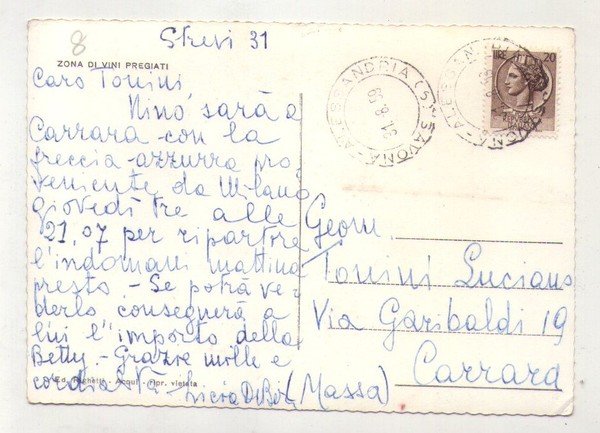 8
Strevi 31
ZONA DI VINI PREGIATI
Caro Tonini,
Nino sarà a
Carrara con la
freccia-azzurra pro
veniente da Milano
giovedì tre alle
21,07 per ripartire
l'indomani mattina
presto - Se potrà ve-
derlo consegnerà a
lui l'importo della
Betty - Grazie mille e
cordialità -
Ed. Righetti - Acqui - Ripr. vietata
LIRE 20
SAVONA - ALESSANDRIA
31.8.
Geom.
Tonini Luciano
Via Garibaldi 19
Carrara
(Massa)